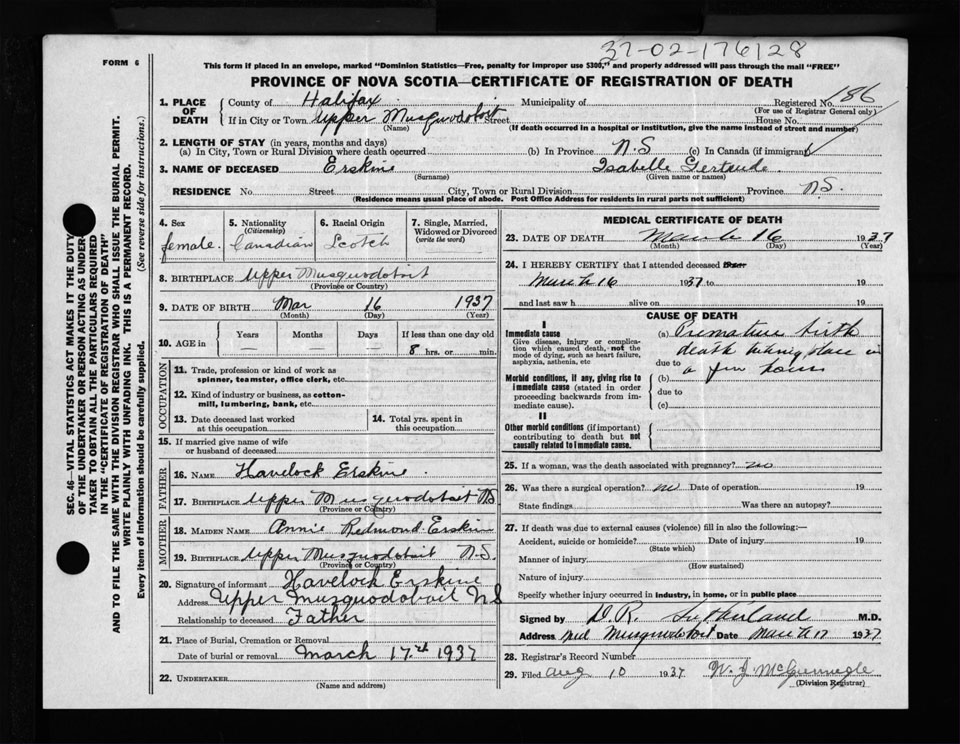 37-02-176128
FORM 6
This form if placed in an envelope, marked "Dominion Statistics—Free, penalty for improper use $300," and properly addressed will pass through the mail "FREE"
PROVINCE OF NOVA SCOTIA—CERTIFICATE OF REGISTRATION OF DEATH
SEC. 46—VITAL STATISTICS ACT MAKES IT THE DUTY
OF THE UNDERTAKER OR PERSON ACTING AS UNDER-
TAKER TO OBTAIN ALL THE PARTICULARS REQUIRED
IN THE "CERTIFICATE OF REGISTRATION OF DEATH"
AND TO FILE THE SAME WITH THE DIVISION REGISTRAR WHO SHALL ISSUE THE BURIAL PERMIT.
WRITE PLAINLY WITH UNFADING INK. THIS IS A PERMANENT RECORD.
Every item of information should be carefully supplied. (See reverse side for instructions.)
1. PLACE OF DEATH
County of Halifax Municipality of Registered No. 86
(For use of Registrar General only)
If in City or Town Upper Musquodoboit Street House No.
(Name) (If death occurred in a hospital or institution, give the name instead of street and number)
2. LENGTH OF STAY (in years, months and days)
(a) In City, Town or Rural Division where death occurred (b) In Province N.S (c) In Canada (if immigrant)
3. NAME OF DECEASED Erskine Isabelle Gertrude.
(Surname) (Given name or names)
RESIDENCE No. Street City, Town or Rural Division Province N.S.
(Residence means usual place of abode. Post Office Address for residents in rural parts not sufficient)
4. Sex 5. Nationality (Citizenship) 6. Racial Origin 7. Single, Married, Widowed or Divorced (write the word)
female. Canadian Scotch
8. BIRTHPLACE Upper Musquodoboit
(Province or Country)
9. DATE OF BIRTH Mar 16 1937
(Month) (Day) (Year)
10. AGE in Years Months Days If less than one day old
8 hrs. or min.
OCCUPATION
11. Trade, profession or kind of work as
spinner, teamster, office clerk, etc.
12. Kind of industry or business, as cotton-
mill, lumbering, bank, etc.
13. Date deceased last worked
at this occupation
14. Total yrs. spent in
this occupation
15. If married give name of wife
or husband of deceased
FATHER
16. NAME Havelock Erskine.
17. BIRTHPLACE Upper Musquodoboit N.S
(Province or Country)
MOTHER
18. MAIDEN NAME Annie Redmond Erskine
19. BIRTHPLACE Upper Musquodoboit N.S.
(Province or Country)
20. Signature of informant Havelock Erskine
Address Upper Musquodoboit N.S
Relationship to deceased Father
21. Place of Burial, Cremation or Removal
Date of burial or removal March 17th 1937
22. UNDERTAKER
(Name and address)
MEDICAL CERTIFICATE OF DEATH
23. DATE OF DEATH March 16 1937
(Month) (Day) (Year)
24. I HEREBY CERTIFY that I attended deceased from
March 16 1937 to 19
and last saw h alive on 19
CAUSE OF DEATH
I
Immediate cause
Give disease, injury or complica-
tion which caused death, not the
mode of dying, such as heart failure,
asphyxia, asthenia, etc
(a) Premature birth
death taking place in
due to a few hours
Morbid conditions, if any, giving rise to
immediate cause (stated in order
proceeding backwards from im-
mediate cause).
(b)
due to
(c)
II
Other morbid conditions (if important)
contributing to death but not
causally related to immediate cause.
25. If a woman, was the death associated with pregnancy? no
26. Was there a surgical operation? no Date of operation 19
State findings Was there an autopsy?
27. If death was due to external causes (violence) fill in also the following:—
Accident, suicide or homicide? Date of injury 19
(State which)
Manner of injury
(How sustained)
Nature of injury
Specify whether injury occurred in industry, in home, or in public place
Signed by D.R. Sutherland M.D.
Address Mid Musquodoboit Date March 17 1937
28. Registrar's Record Number
29. Filed Aug 10 1937
(Division Registrar)